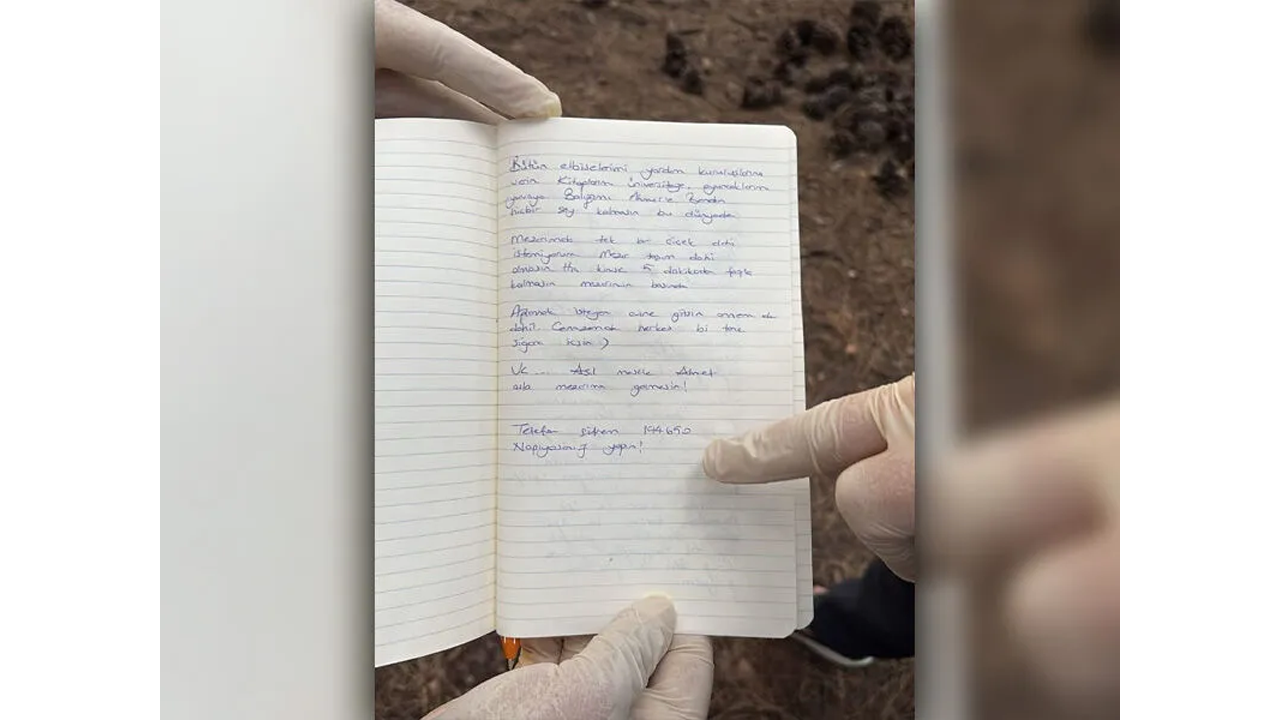 Bütün elbiselerimi yardım kuruluşlarına
verin Kitaplarım üniversiteye, oyuncaklarım
yuvaya Balığımı Ahmet'e Benden
hiçbir şey kalmasın bu dünyada
Mezarımda tek bir çiçek dahi
istemiyorum Mezar taşım dahi
olmasın Hiç kimse 5 dakikadan fazla
kalmasın mezarımın başında
Ağlamak isteyen evine gitsin annem de
dahil. Cenazemde herkes bi tane
sigara içsin )
Ve ... Asıl mesele Ahmet
asla mezarıma gelmesin!
Telefon şifrem 194650
Napıyosanız yapın!